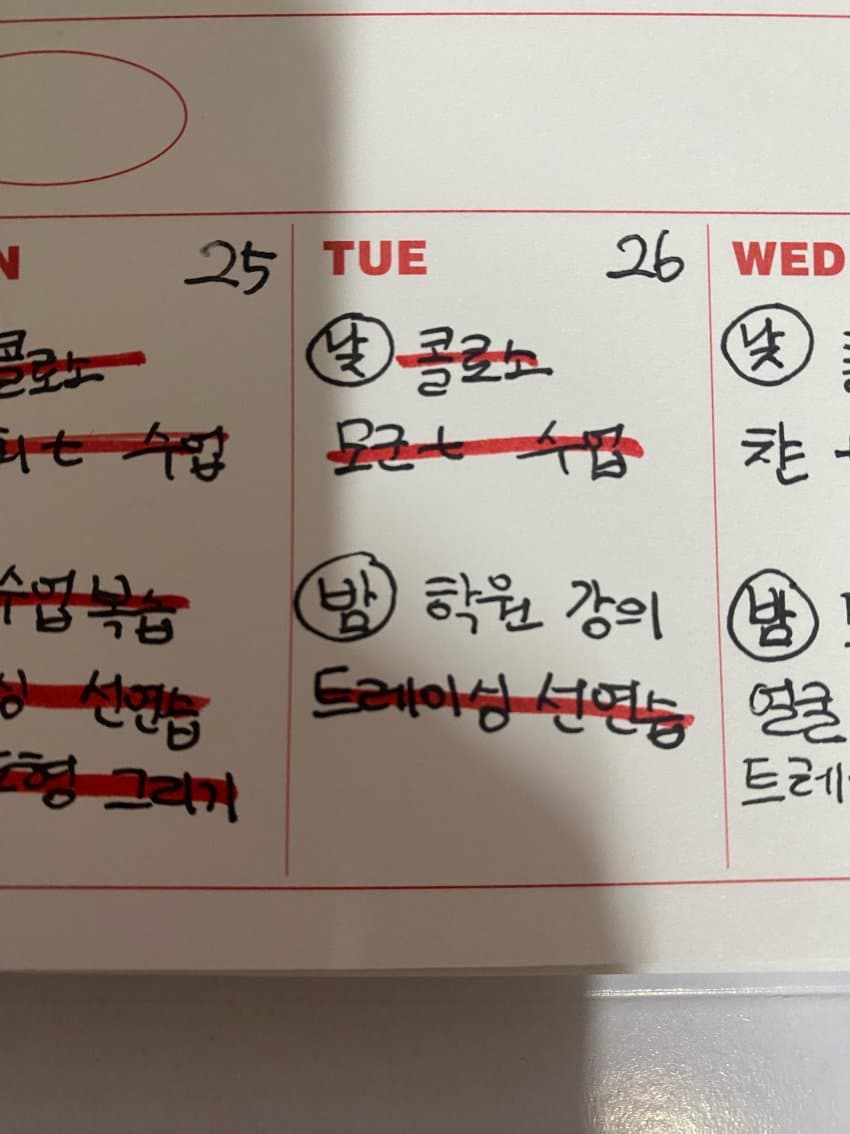 N 25
콜로소
t 수업
수업 복습
싱 선연습
도형 그리기
TUE 26
낮 콜로소
모군t 수업
밤 학원 강의
트레이싱 선연습
WED
낮
챤
밤
얼굴
트레